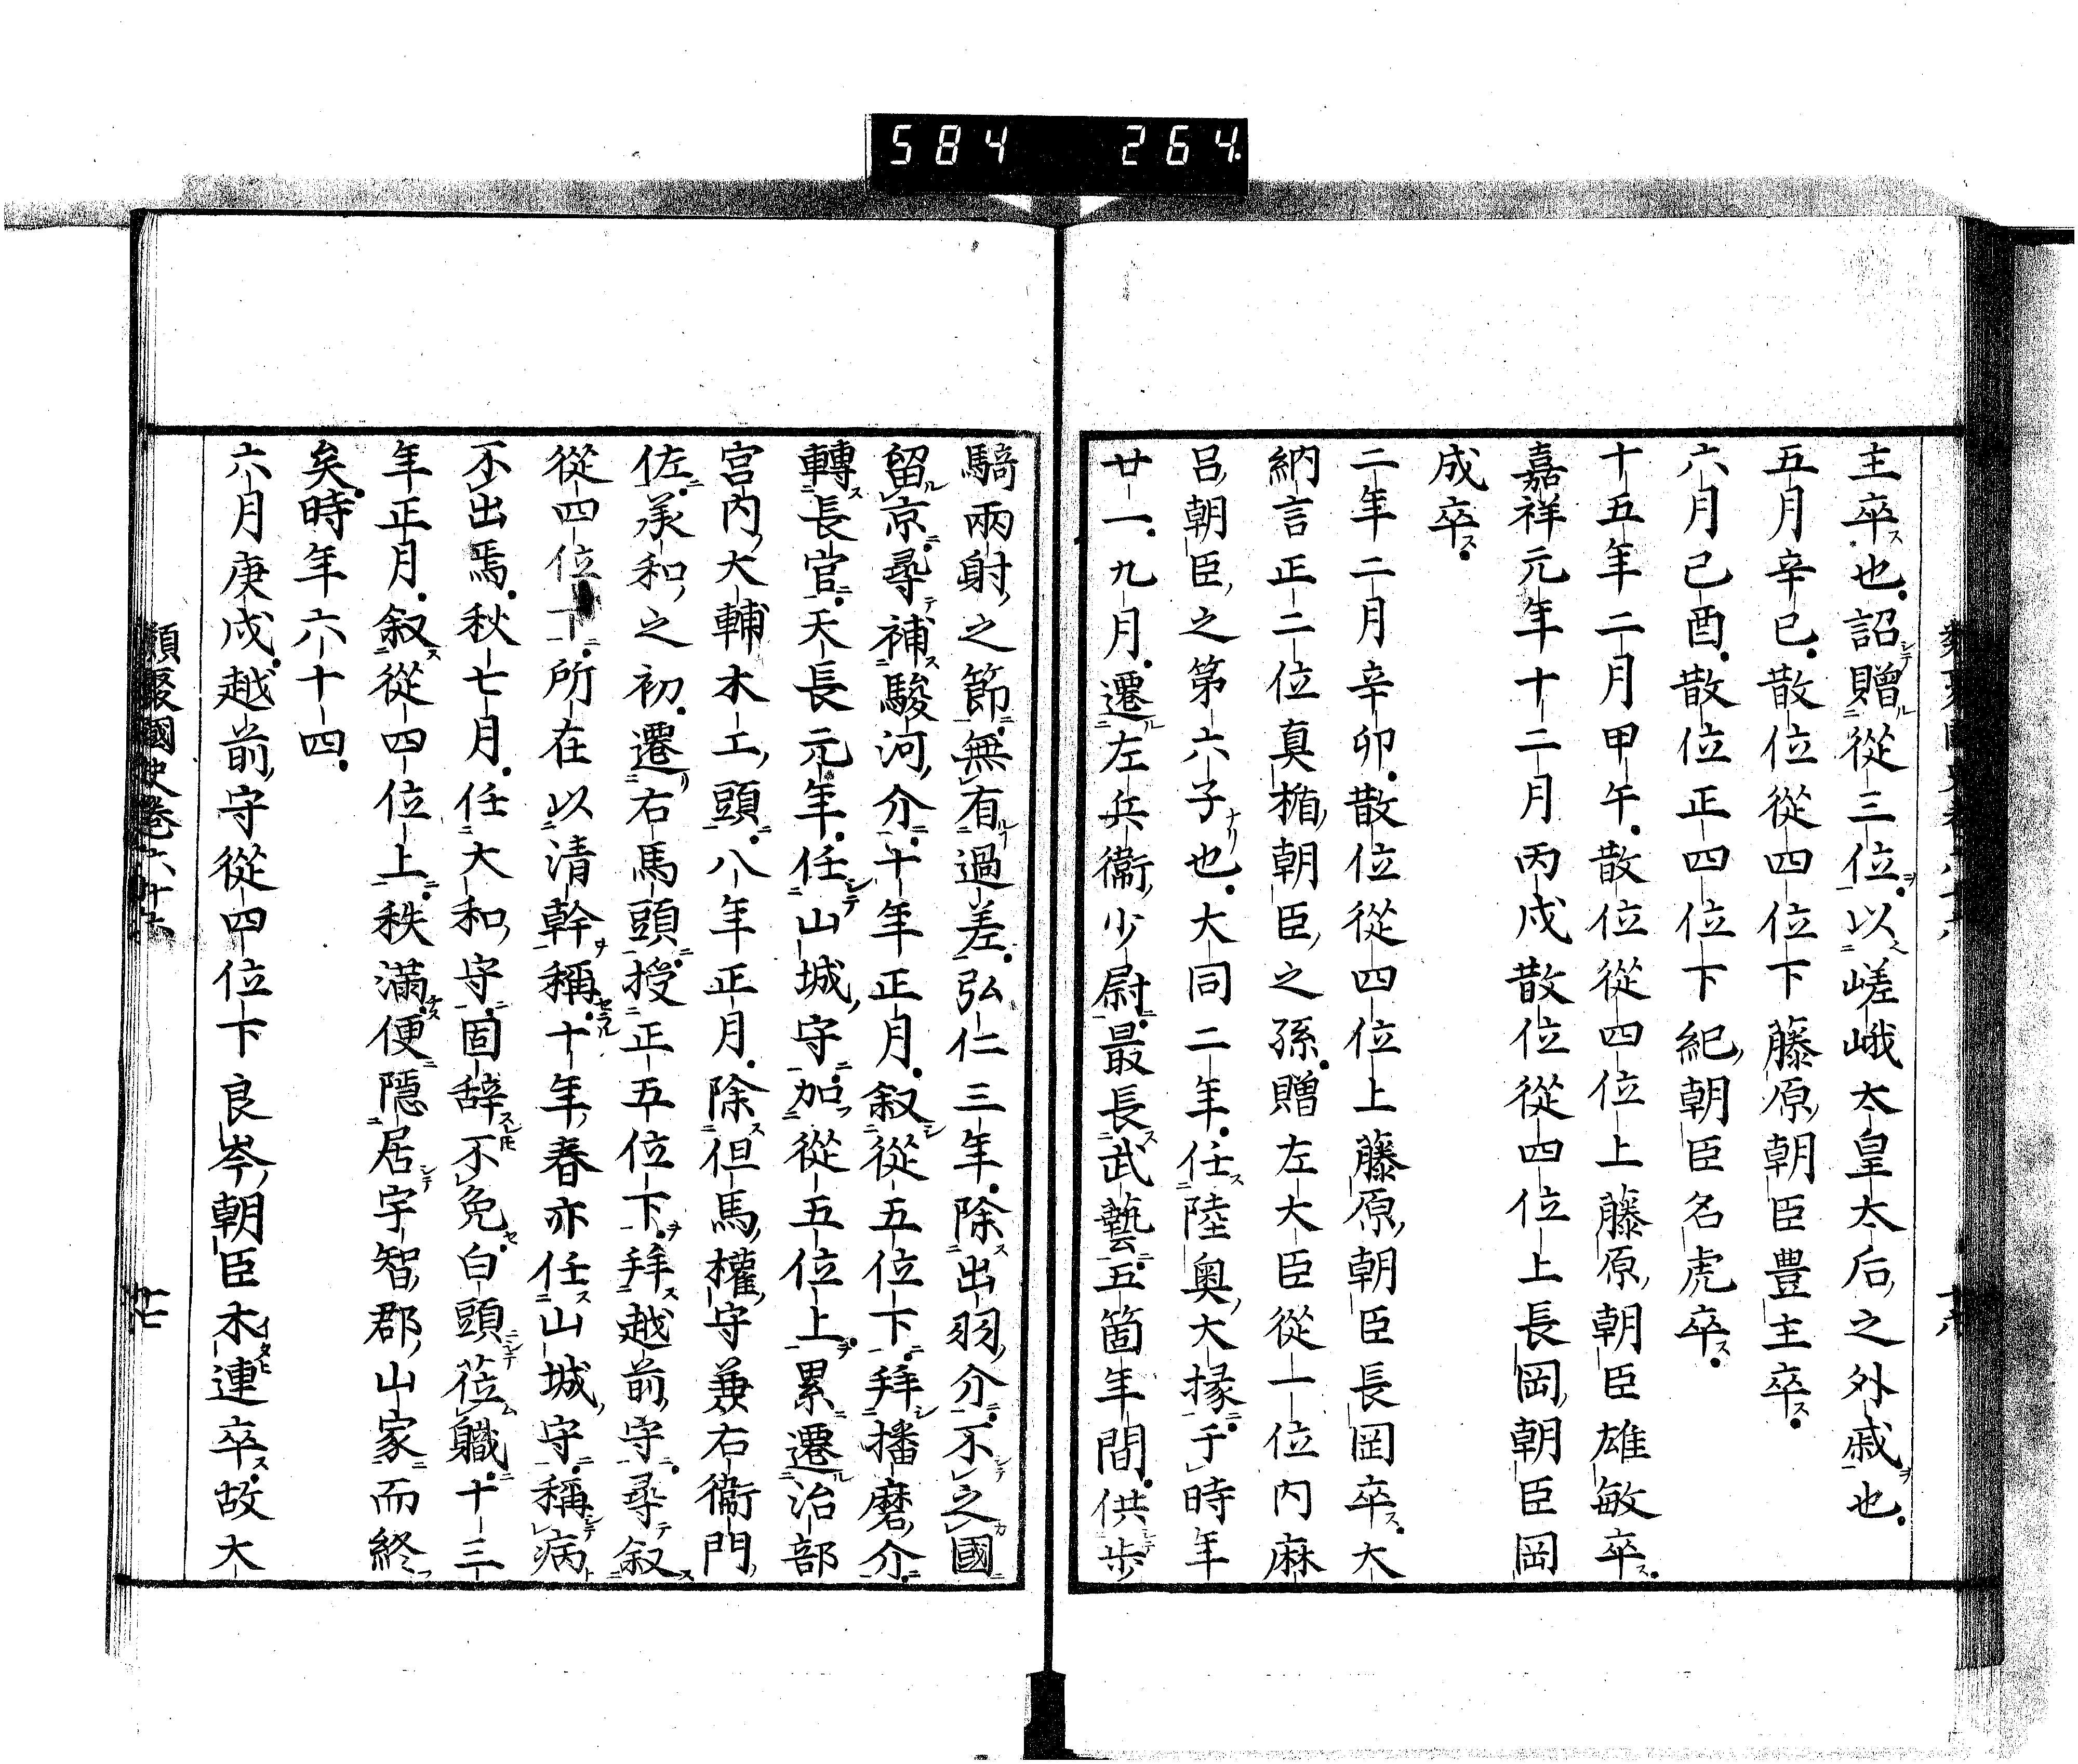 584 264
主卒也詔贈從三位以嵯峨太皇太后之外戚也
五月辛巳散位從四位下藤原朝臣豊主卒
六月己酉散位正四位下紀朝臣名虎卒
十五年二月甲午散位從四位上藤原朝臣雄敏卒
嘉祥元年十二月丙戌散位從四位上長岡朝臣岡
成卒
二年二月辛卯散位從四位上藤原朝臣長岡卒大
納言正二位真楯朝臣之孫贈左大臣從一位内麻
呂朝臣之第六子也大同二年任陸奥大掾于時年
廿一九月遷左兵衞少尉最長武藝五箇年間供歩
騎兩射之節無有過差弘仁三年除出羽介不之國
留京尋補駿河介十年正月叙從五位下拜播磨介
轉長官天長元年任山城守加從五位上累遷治部
宮内大輔木工頭八年正月除但馬權守兼右衞門
佐承和之初遷右馬頭授正五位下拜越前守尋叙
從四位下所在以清幹稱十年春亦任山城守稱病
不出焉秋七月任大和守固辞不免白頭莅職十三
年正月叙從四位上秩滿便隱居宇智郡山家而終
矣時年六十四
六月庚戌越前守從四位下良岑朝臣木連卒故大
類聚國史卷六十六
十七